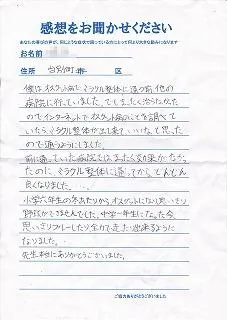 感想をお聞かせください
お名前
住所 当別町 市 区
僕は、オスグット病でミラクル整体に通う前、他の
病院に行っていました。でもまったく治らなかった
のでインターネットでオスグット病のことを調べて
いたら、ミラクル整体が出て来て、いいなと思った
ので通うようにしました。
前に通っていた病院ではまったく効果がなかっ
たのに、ミラクル整体に通ってからどんどん
良くなりました。
小学六年生の冬あたりからオスグットになり思いっきり
野球ができませんでした。中学一年生になった今、
思いっきりプレーしたり全力で走ったり出来るように
なりました。
先生本当にありがとうございました。
ご協力ありがとうございました